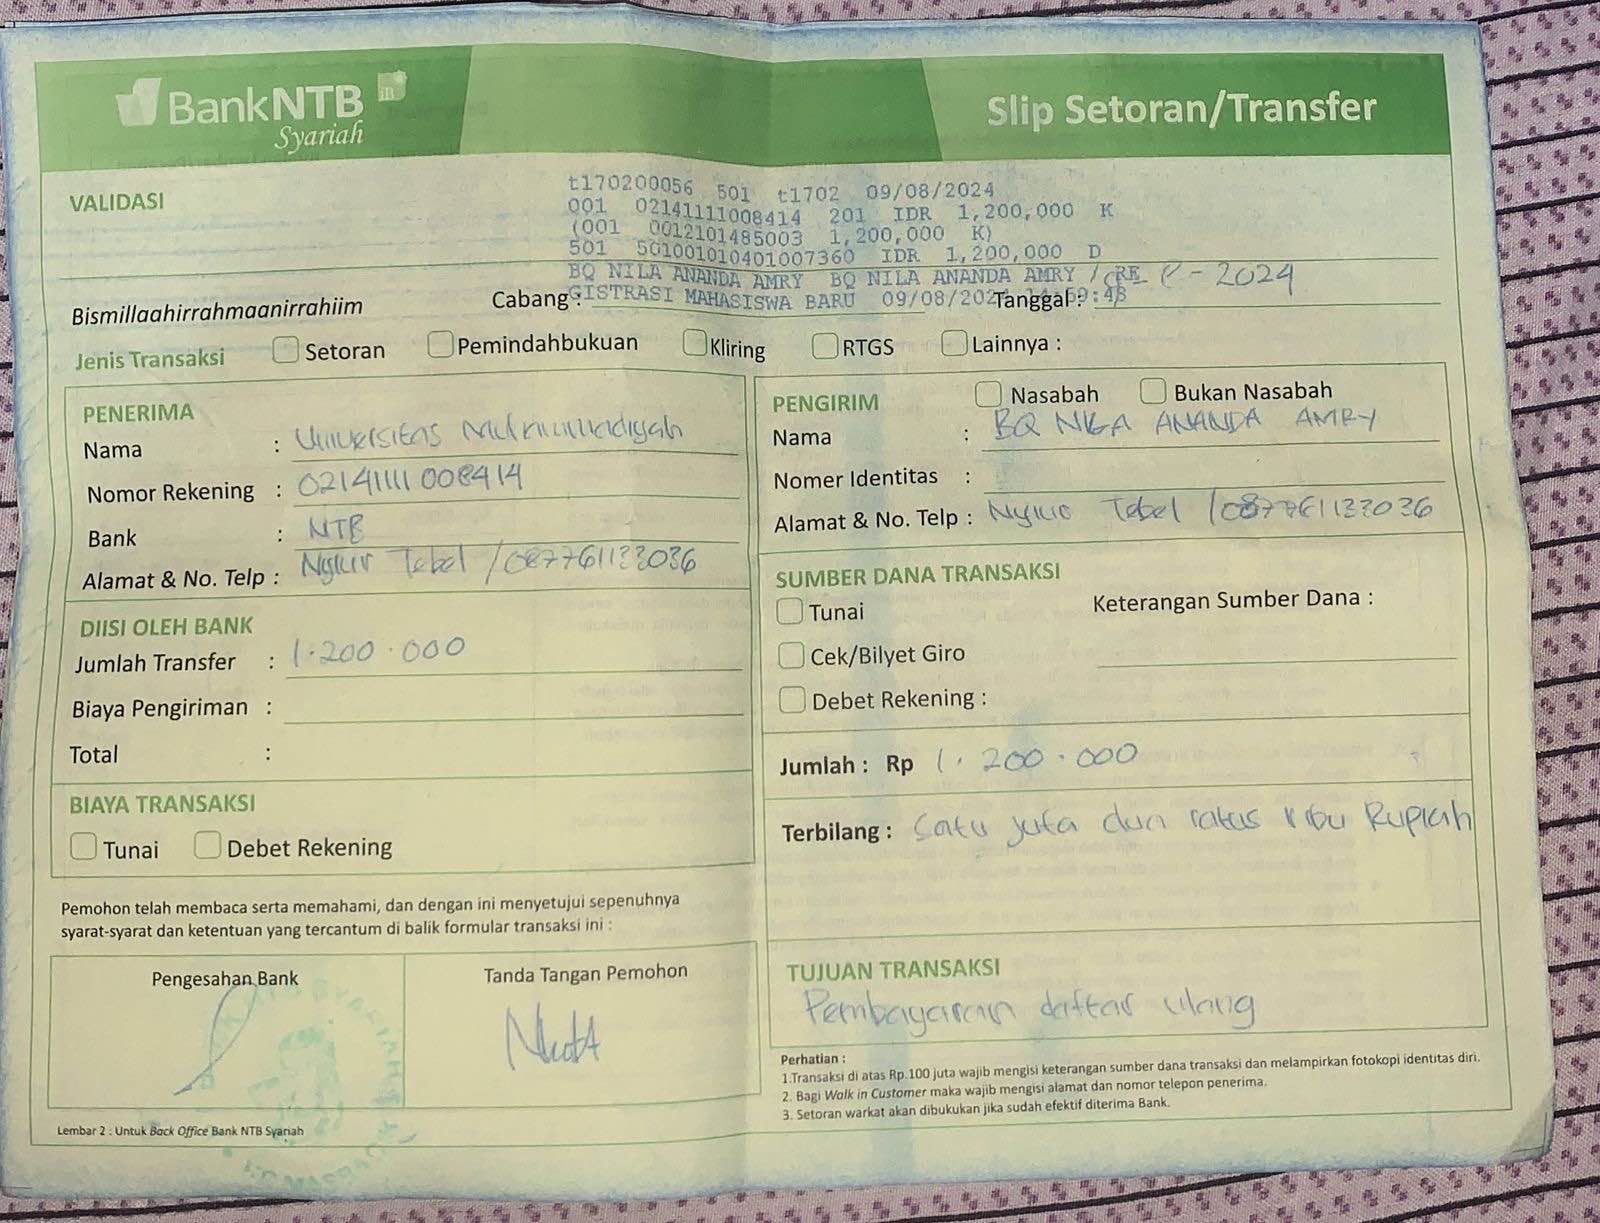 BankNTB
Syariah
Slip Setoran/Transfer
VALIDASI
t170200056 501 t1702 09/08/2024
001 02141111008414 201 IDR 1,200,000 K
(001 0012101485003 1,200,000 K)
501 501001010401007360 IDR 1,200,000 D
BQ NILA ANANDA AMRY BQ NILA ANANDA AMRY / RE
GISTRASI MAHASISWA BARU 09/08/202
Bismillaahirrahmaanirrahiim
Cabang :
Tanggal : - 2024
Jenis Transaksi Setoran Pemindahbukuan Kliring RTGS Lainnya :
PENERIMA
Nama : Universitas Muhammadiyah
Nomor Rekening : 02141111008414
Bank : NTB
Alamat & No. Telp : Nyiur Tebel / 087761133036
DIISI OLEH BANK
Jumlah Transfer : 1.200.000
Biaya Pengiriman :
Total :
BIAYA TRANSAKSI
Tunai Debet Rekening
Pemohon telah membaca serta memahami, dan dengan ini menyetujui sepenuhnya
syarat-syarat dan ketentuan yang tercantum di balik formular transaksi ini :
Pengesahan Bank
Tanda Tangan Pemohon
Lembar 2 : Untuk Back Office Bank NTB Syariah
PENGIRIM Nasabah Bukan Nasabah
Nama : BQ NILA ANANDA AMRY
Nomer Identitas :
Alamat & No. Telp : Nyiur Tebel / 087761133036
SUMBER DANA TRANSAKSI
Tunai Keterangan Sumber Dana :
Cek/Bilyet Giro
Debet Rekening :
Jumlah : Rp 1.200.000
Terbilang : Satu juta dua ratus ribu Rupiah
TUJUAN TRANSAKSI
Pembayaran daftar ulang
Perhatian :
1.Transaksi di atas Rp.100 juta wajib mengisi keterangan sumber dana transaksi dan melampirkan fotokopi identitas diri.
2. Bagi Walk in Customer maka wajib mengisi alamat dan nomor telepon penerima.
3. Setoran warkat akan dibukukan jika sudah efektif diterima Bank.